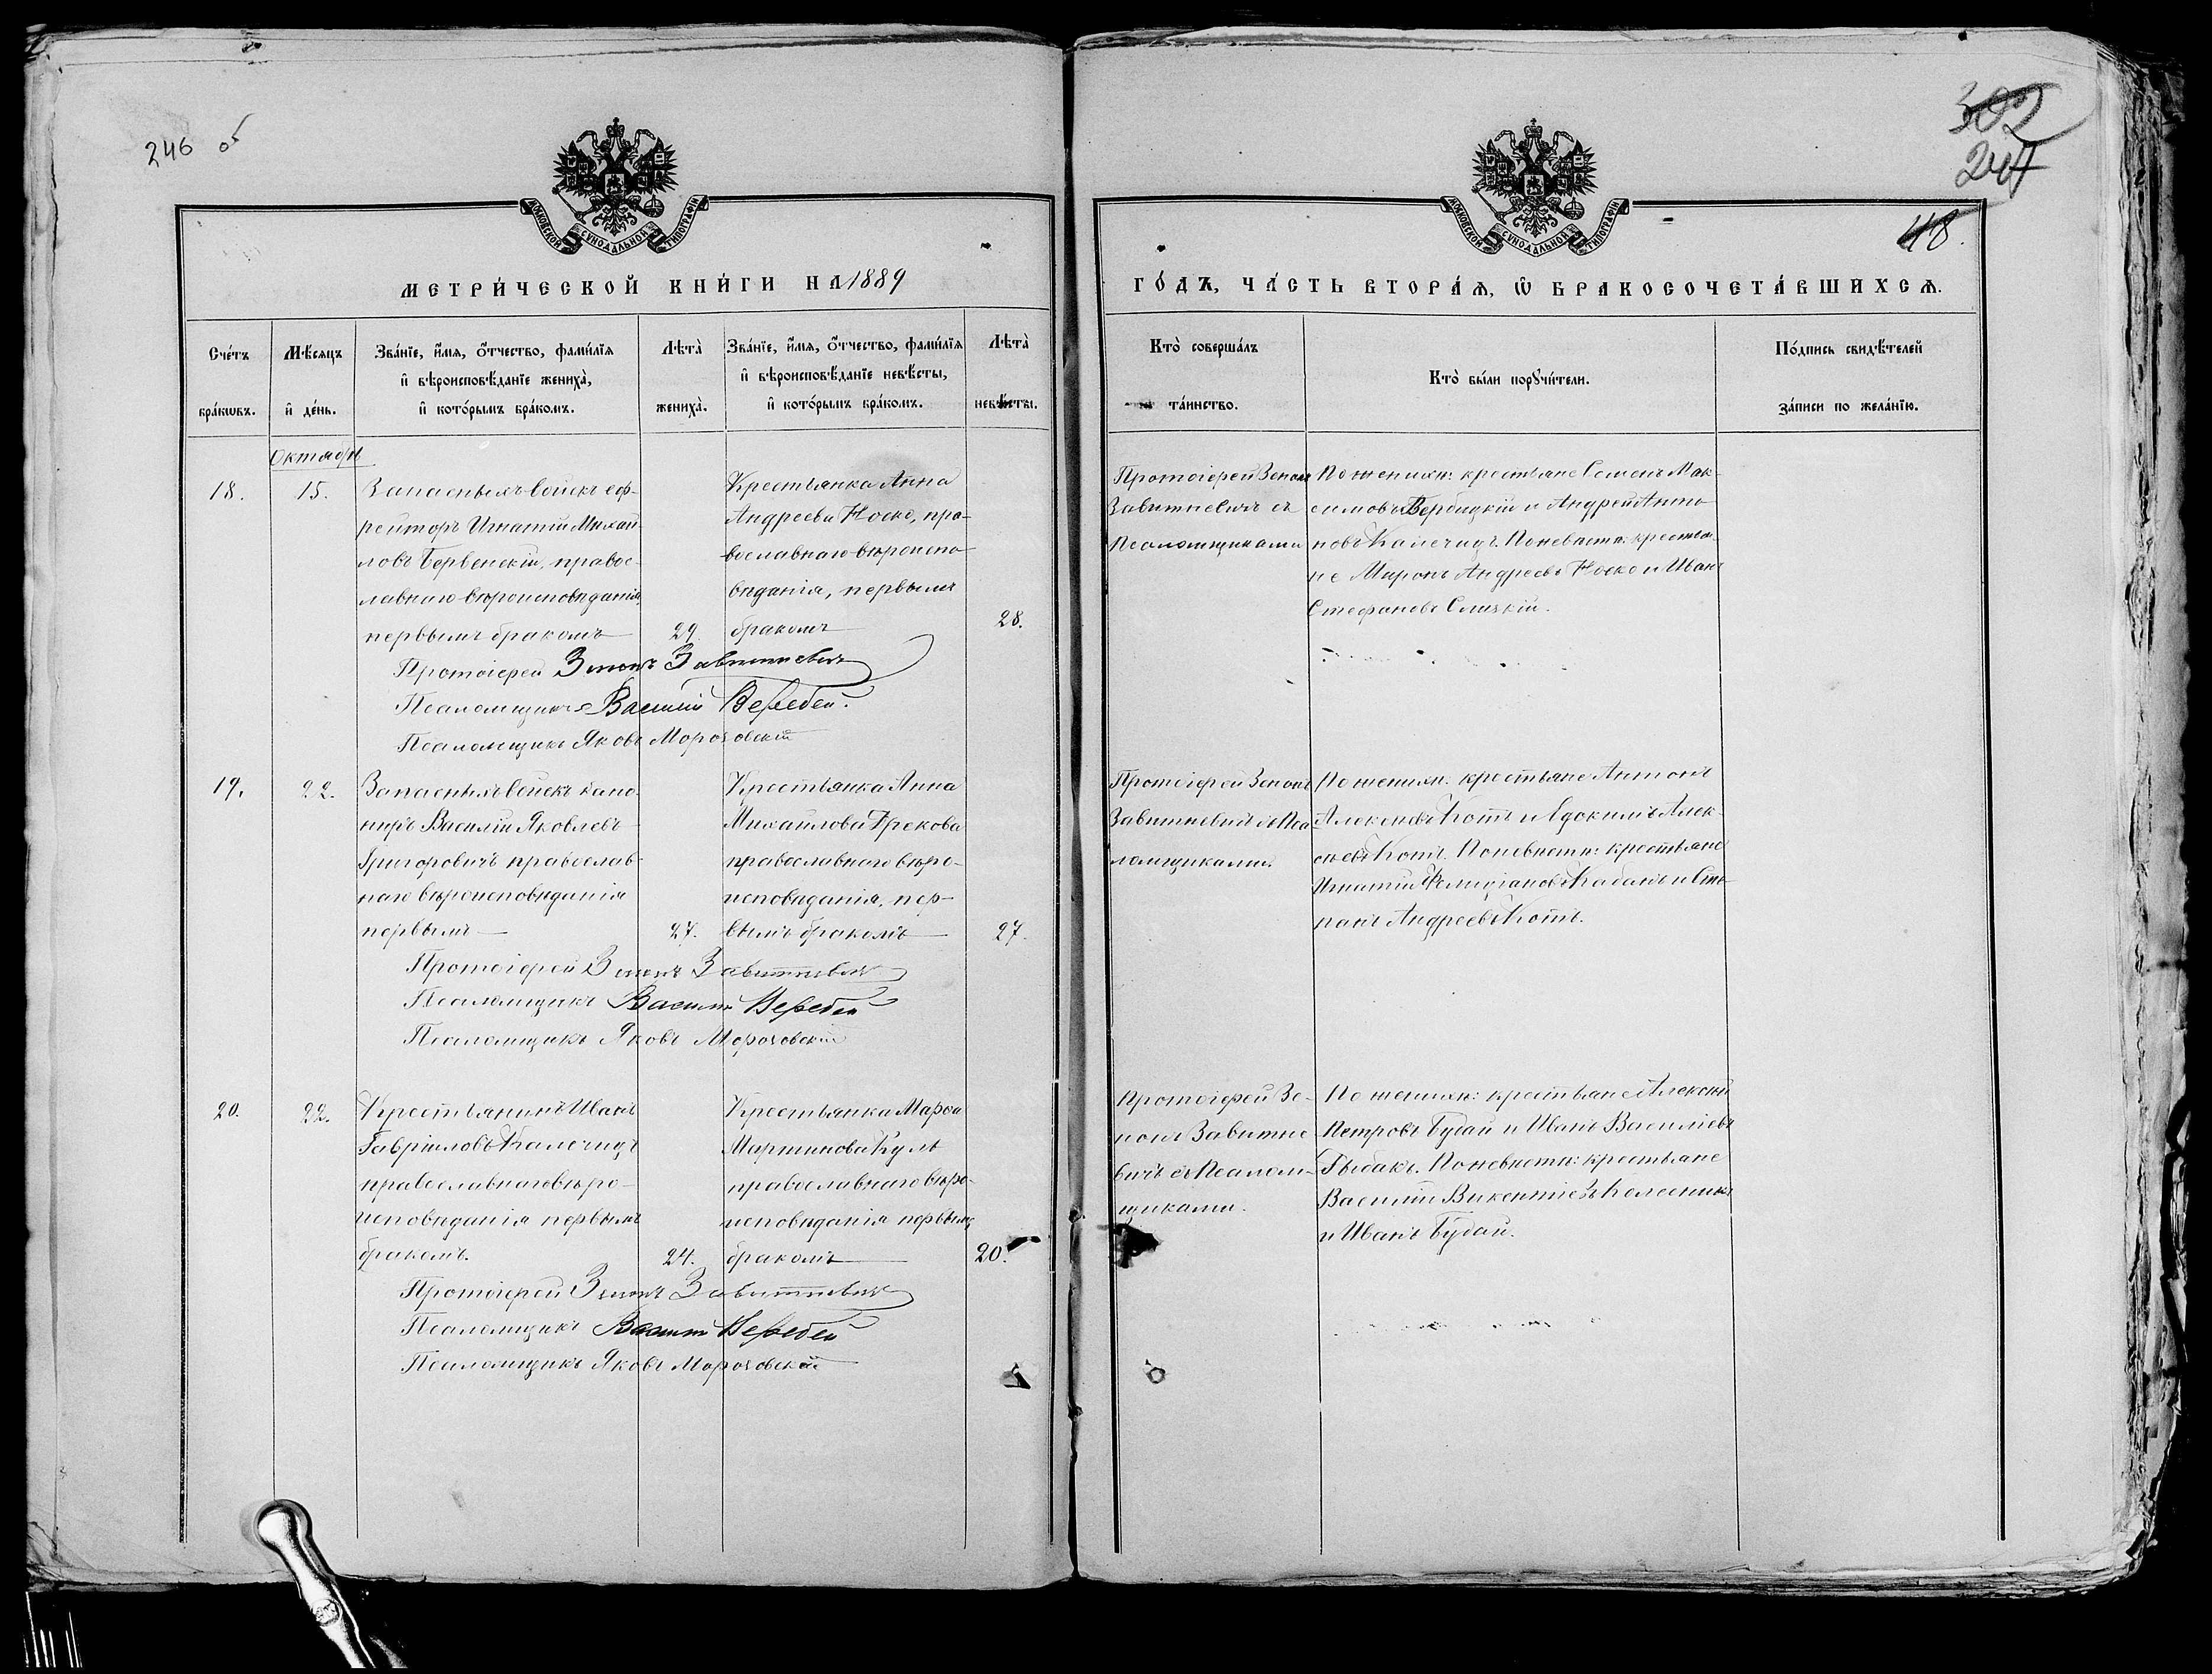 246 об
302
247
48.
МОСКОВСКОЙ СѴНОДАЛЬНОЙ ТИПОГРАФІИ
МОСКОВСКОЙ СѴНОДАЛЬНОЙ ТИПОГРАФІИ
МЕТРИ́ЧЕСКОЙ КНИ́ГИ НА 1889
ГО́ДЪ, ЧА́СТЬ ВТОРА́Ѧ, Ѡ҆ БРАКОСОЧЕТА́ВШИХСѦ.
Сче́тъ
бра́кѡвъ.
Мѣ́сяцъ
и҆ де́нь.
Зва́нїе, и҆́мѧ, ѻ҆́тчество, фами́лїѧ
и҆ вѣроисповѣ́данїе жениха̀,
и҆ кото́рымъ бра́комъ.
Лѣта̀
жениха̀.
Зва́нїе, и҆́мѧ, ѻ҆́тчество, фами́лїѧ
и҆ вѣроисповѣ́данїе невѣ́сты,
и҆ кото́рымъ бра́комъ.
Лѣта̀
невѣ́сты.
Кто̀ соверша́лъ
та́инство.
Кто̀ бы́ли порꙋчи́тели.
По́дпись свидѣ́телей
за́писи по жела́нїю.
Октябрь
18.
15.
Запасныхъ войскъ еф-
рейторъ Игнатій Михай-
ловъ Бервенскій, правос-
лавнаго вѣроисповѣданія,
первымъ бракомъ
29.
Крестьянка Анна
Андреева Носко, пра-
вославнаго вѣроиспо-
вѣданія, первымъ
бракомъ
28.
Протоіерей Зенонъ
Завитневичъ съ
Псаломщиками
По женихѣ: крестьяне Семенъ Мак-
симовъ Вербицкій и Андрей Анто-
новъ Калечицъ. По невѣстѣ: крестья-
не Миронъ Андреевъ Носко и Иванъ
Стефановъ Слизкій.
Протоіерей Зенонъ Завитневичъ
Псаломщикъ Василій Веребей.
Псаломщикъ Яковъ Морозовскій
19.
22.
Запасныхъ войскъ кано-
ниръ Василій Яковлевъ
Григоровичъ православ-
наго вѣроисповѣданія
первымъ
27.
Крестьянка Анна
Михайлова Грекова
православнаго вѣро-
исповѣданія, пер-
вымъ бракомъ
27.
Протоіерей Зенонъ
Завитневичъ съ Пса-
ломщиками.
По женихѣ: крестьяне Антонъ
Алексѣевъ Котъ и Евдокимъ Алек-
сѣевъ Котъ. По невѣстѣ: крестьяне
Игнатій Фелиціановъ Кабакъ и Сте-
панъ Андреевъ Котъ.
Протоіерей Зенонъ Завитневичъ
Псаломщикъ Василій Веребей
Псаломщикъ Яковъ Морозовскій
20.
22.
Крестьянинъ Иванъ
Гавріиловъ Калечицъ
православнаго вѣро-
исповѣданія первымъ
бракомъ.
24.
Крестьянка Марѳа
Мартинова Куль
православнаго вѣро-
исповѣданія первымъ
бракомъ
20.
Протоіерей Зе-
нонъ Завитне-
вичъ съ Псалом-
щиками.
По женихѣ: крестьяне Алексѣй
Петровъ Будай и Иванъ Василіевъ
Рыбакъ. По невѣстѣ: крестьяне
Василій Викентіевъ Колесникъ
и Иванъ Будай.
Протоіерей Зенонъ Завитневичъ
Псаломщикъ Василій Веребей
Псаломщикъ Яковъ Морозовскій